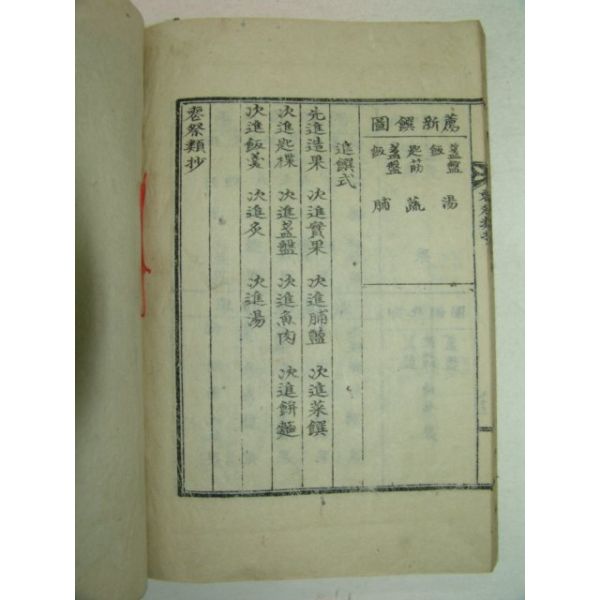 薦新饌圖
盞盤 飯 湯
匙筋 蔬
盞盤 飯 脯
進饌式
先進造果 次進實果 次進脯醢 次進菜饌
次進匙楪 次進盞盤 次進魚肉 次進餅麵
次進飯羹 次進炙 次進湯
喪祭類抄